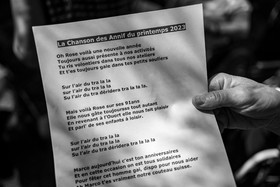 La Chanson des Annif du printemps 2023
Oh Rose voilà une nouvelle année
Toujours aussi présente à nos activités
Tu ris volontiers dans tous nos ateliers
Et t'as toujours gale dans tes petits souliers
Sur l'air du tra la la
Sur l'air du tra la la
Sur l'air du tra déridera tra la la la
Mais voilà Rose sur ses
Elle nous goûte toujours tout autant
En revenant à l'Ouest elle nous fait luisant
Et part' de ses enfants à loisir.
Sur l'air du tra la la
Sur l'air du tra la la
Sur l'air du tra déridera tra la la la
Marco aujourd'hui c'est ton anniversaire
Et en cette occasion on est tous solidaires
Pour fêter cet homme gai, dispo pour nous aider
Marco t'es vraiment notre couteau suisse.